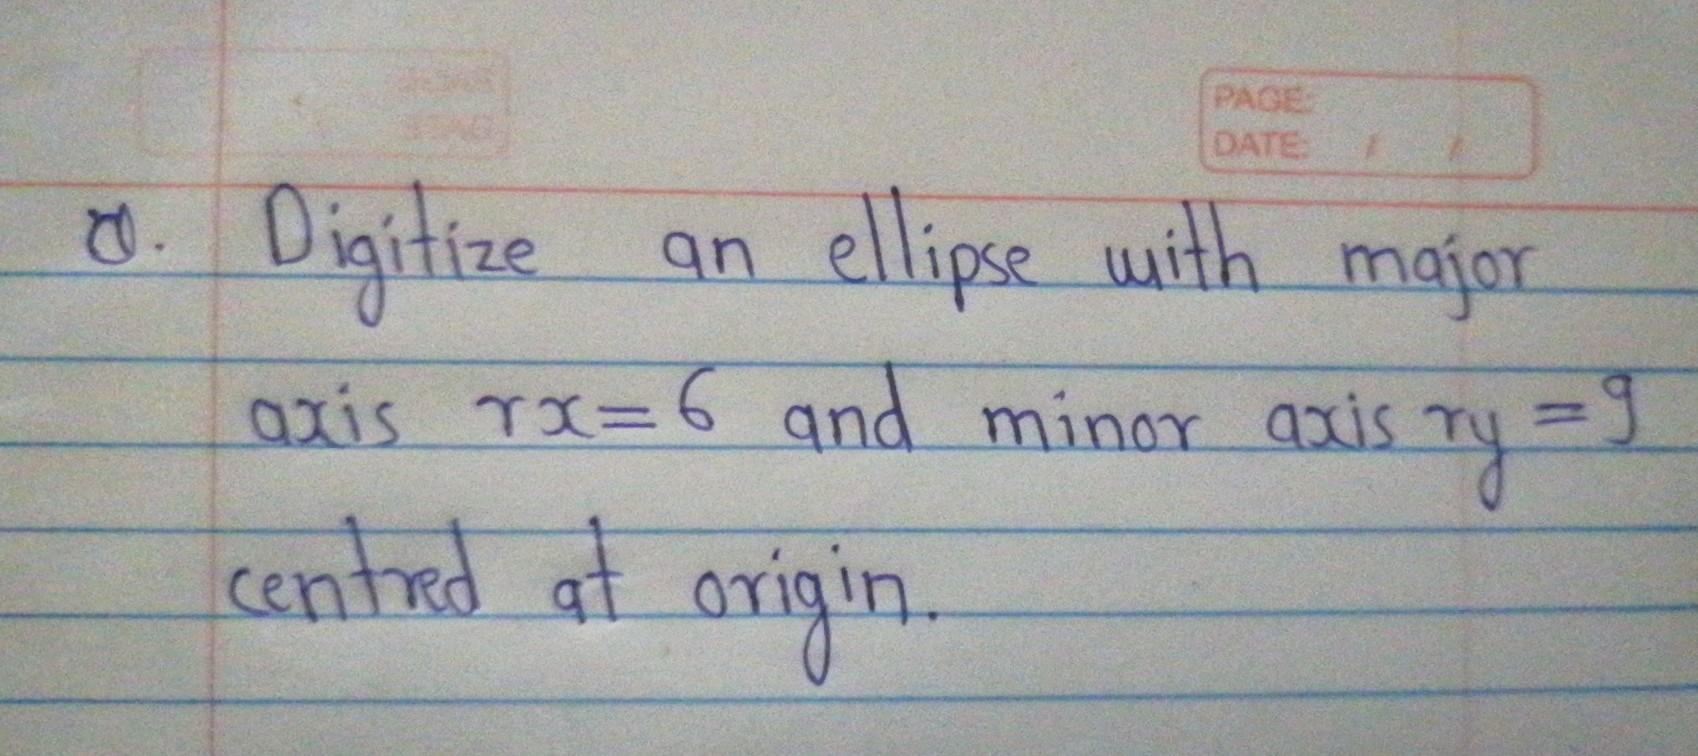 PAGE:
DATE: / /
Q. Digitize an ellipse with major
axis rx=6 and minor axis ry=9
centred at origin.